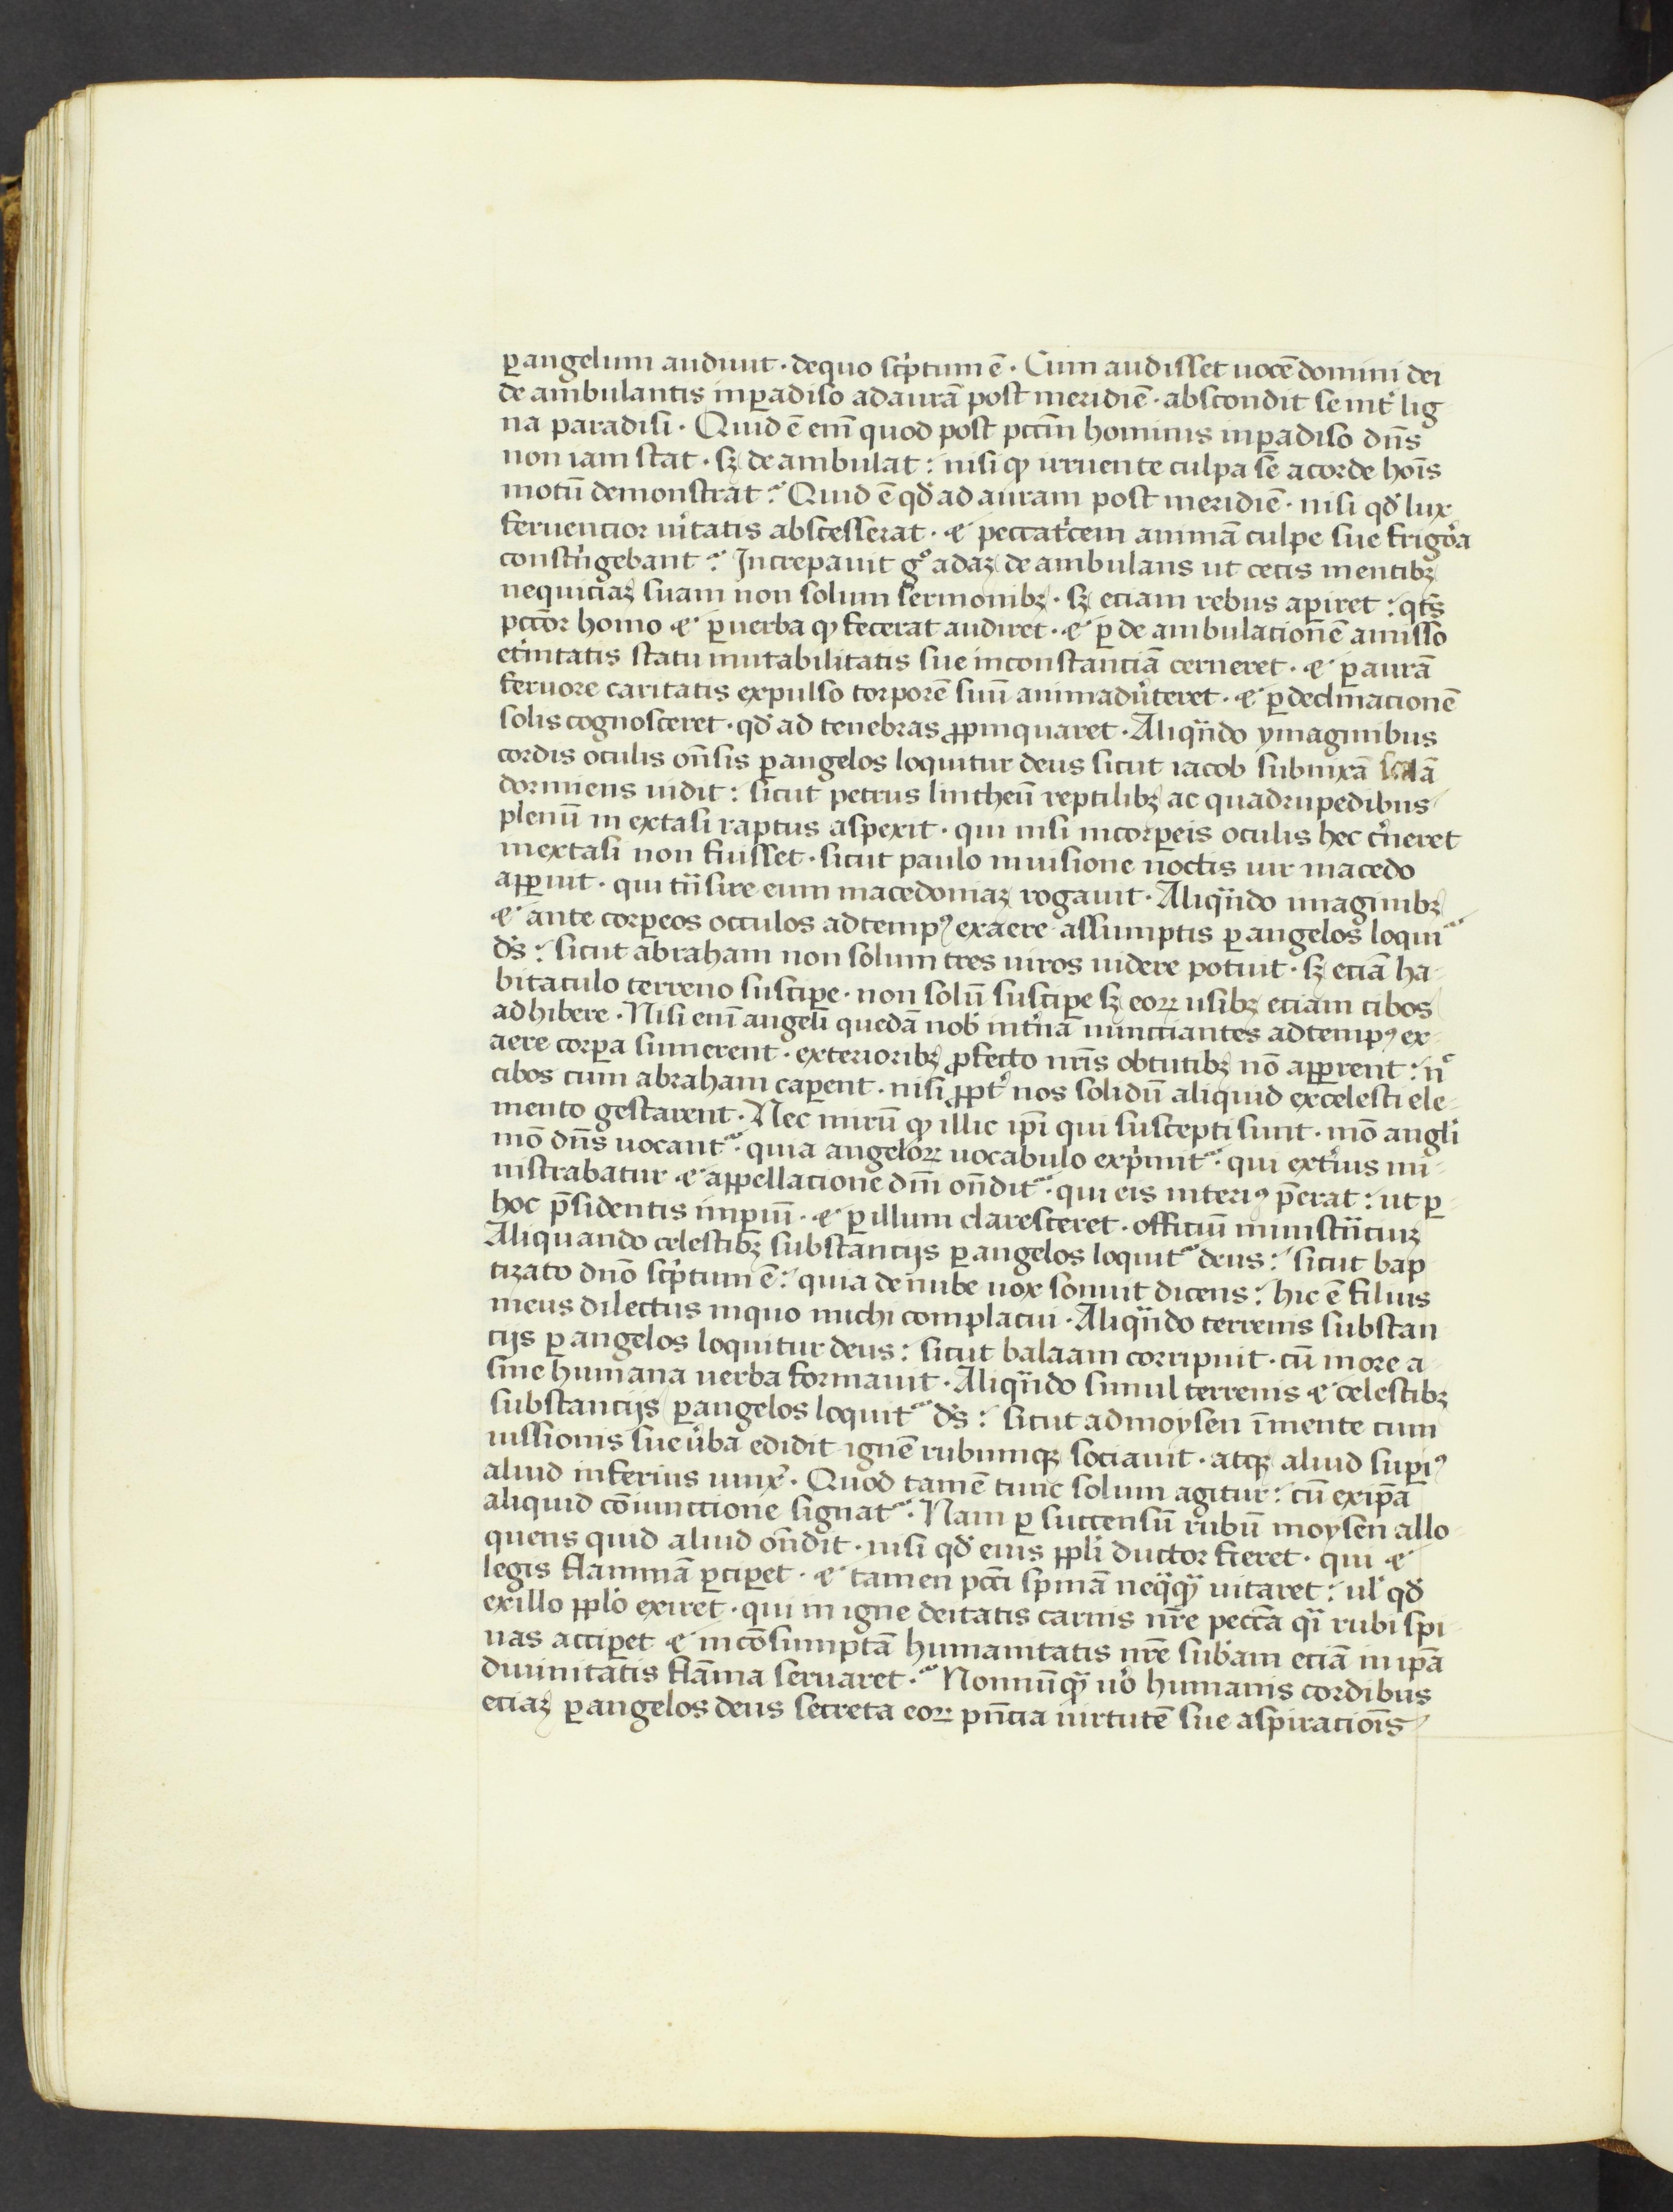 ꝑ angelum audiuit · de quo sc̓ptum ē · Cum audisset uocē domini dei
de ambulantis in ꝑadiso ad aurā post meridiē · abscondit se int̓ lig
na paradisi · Quid ē eni̅ quod post pcc̄m hominis in ꝑadiso dn̄s
non iam stat · sꝫ de ambulat : nisi ꝙ irruente culpa sē a corde hoi̅s
motū demonstrat ? Quid ē qđ ad auram post meridiē · nisi qđ lux
feruencior u̓itatis abscesserat · ⁊ peccat̓cem animā culpe sue frigo̓a
const̓ngebant ? Increpauit gͦ adaꝫ de ambulans ut cecis mentibꝫ
nequiciaꝫ suam non solum sermonibꝫ · sꝫ eciam rebus aꝑiret : qt̄s
pccōr homo ⁊ ꝑ uerba ꝙ fecerat audiret · ⁊ ꝑ de ambulacionē amisso
et̓nitatis statu mutabilitatis sue inconstanciā cerneret · ⁊ ꝑ aurā
feruore caritatis expulso torporē suū animadu̓teret · ⁊ ꝑ declinacionē
solis cognosceret · qđ ad tenebras ꝓpinquaret · Aliqn̈do ymaginibus
cordis oculis on̄sis ꝑ angelos loquitur deus sicut iacob subnixā scalā
dormiens uidit : sicut petrus lintheū reptilibꝫ ac quadrupedibus
plenū in extasi raptus aspexit · qui nisi incorꝑeis oculis hec c̓neret
in extasi non fuisset · sicut paulo in uisione noctis uir macedo
apꝑuit · qui tn̈sire eum macedoniaꝫ rogauit · Aliqn̈do imaginibꝫ
⁊ ante corꝑeos occulos ad tempꝰ ex aere assumptis ꝑ angelos loqui᷑
ds̄ : sicut abraham non solum tres uiros uidere potuit · sꝫ eciā ha-
bitaculo terreno susciꝑe · non solū susciꝑe sꝫ eoꝝ usibꝫ eciam cibos
adhibere · Nisi eni̅ angeli quedā nob̓ int̓na nuncciantes ad tempꝰ ex-
aere corꝑa sumerent · exterioribꝫ ꝓfecto nr̄is obtutibꝫ nō apꝑrent : nͨ
cibos cum abraham caꝑent · nisi ꝓpt̓ nos solidū aliquid ex celesti ele-
mento gestarent · Nec mirū ꝙ illic ip̄i qui suscepti sunt · mō angl̓i
mō dn̄s uocant᷑ · quia angeloꝝ uocabulo exp̓mit᷑ · qui ext̓ius mi-
nistrabatur ⁊ appellacione dn̄i on̄dit᷑ · qui eis interiꝰ p̄erat : ut ꝑ
hoc p̄sidentis imꝑiu̅ · ⁊ ꝑ illum claresceret · officiū ministn̈ciuꝫ
Aliquando celestibꝫ substancijs ꝑ angelos loquit᷑ deus : sicut bap
tizato dn̄o sc̓ptum ē : quia de nube uox sonuit dicens : hic ē filius
meus dilectus in quo michi complacui · Aliqn̈do terrenis substan
cijs ꝑ angelos loquitur deus : sicut balaam corripuit · cū in ore a-
sine humana uerba formauit · Aliqn̈do simul terrenis ⁊ celestibꝫ
substancijs ꝑ angelos loquit᷑ ds̄ : sicut ad moysen ī mente cum
iussionis sue u̓ba edidit ignē rubumqꝫ sociauit · atqꝫ aliud suꝑiꝰ
aliud inferius iunx̓ · Quod tamē tunc solum agitur : cū ex ip̄a
aliquid cōiunccione signat᷑ · Nam ꝑ succensū rubū moysen allo-
quens quid aliud on̄dit · nisi qđ eius pp̄li ductor fieret · qui ⁊
legis flammā ꝑciꝑet · ⁊ tamen pcc̄i spinā neqq̈ꝙ uitaret : ul̓ qđ
ex illo pp̄lo exiret · qui in igne deitatis carnis nr̄e pecc̄a q̈i rubi spi-
nas acciꝑet ⁊ incōsumptā humanitatis nr̄e sub̓am eciā in ip̄a
diuinitatis flāma seruaret ·᷑ Nonnūqꝙ uo̓ humanis cordibus
eciaꝫ ꝑ angelos deus secreta eoꝝ pn̄cia uirtutē sue aspiracioi̅s